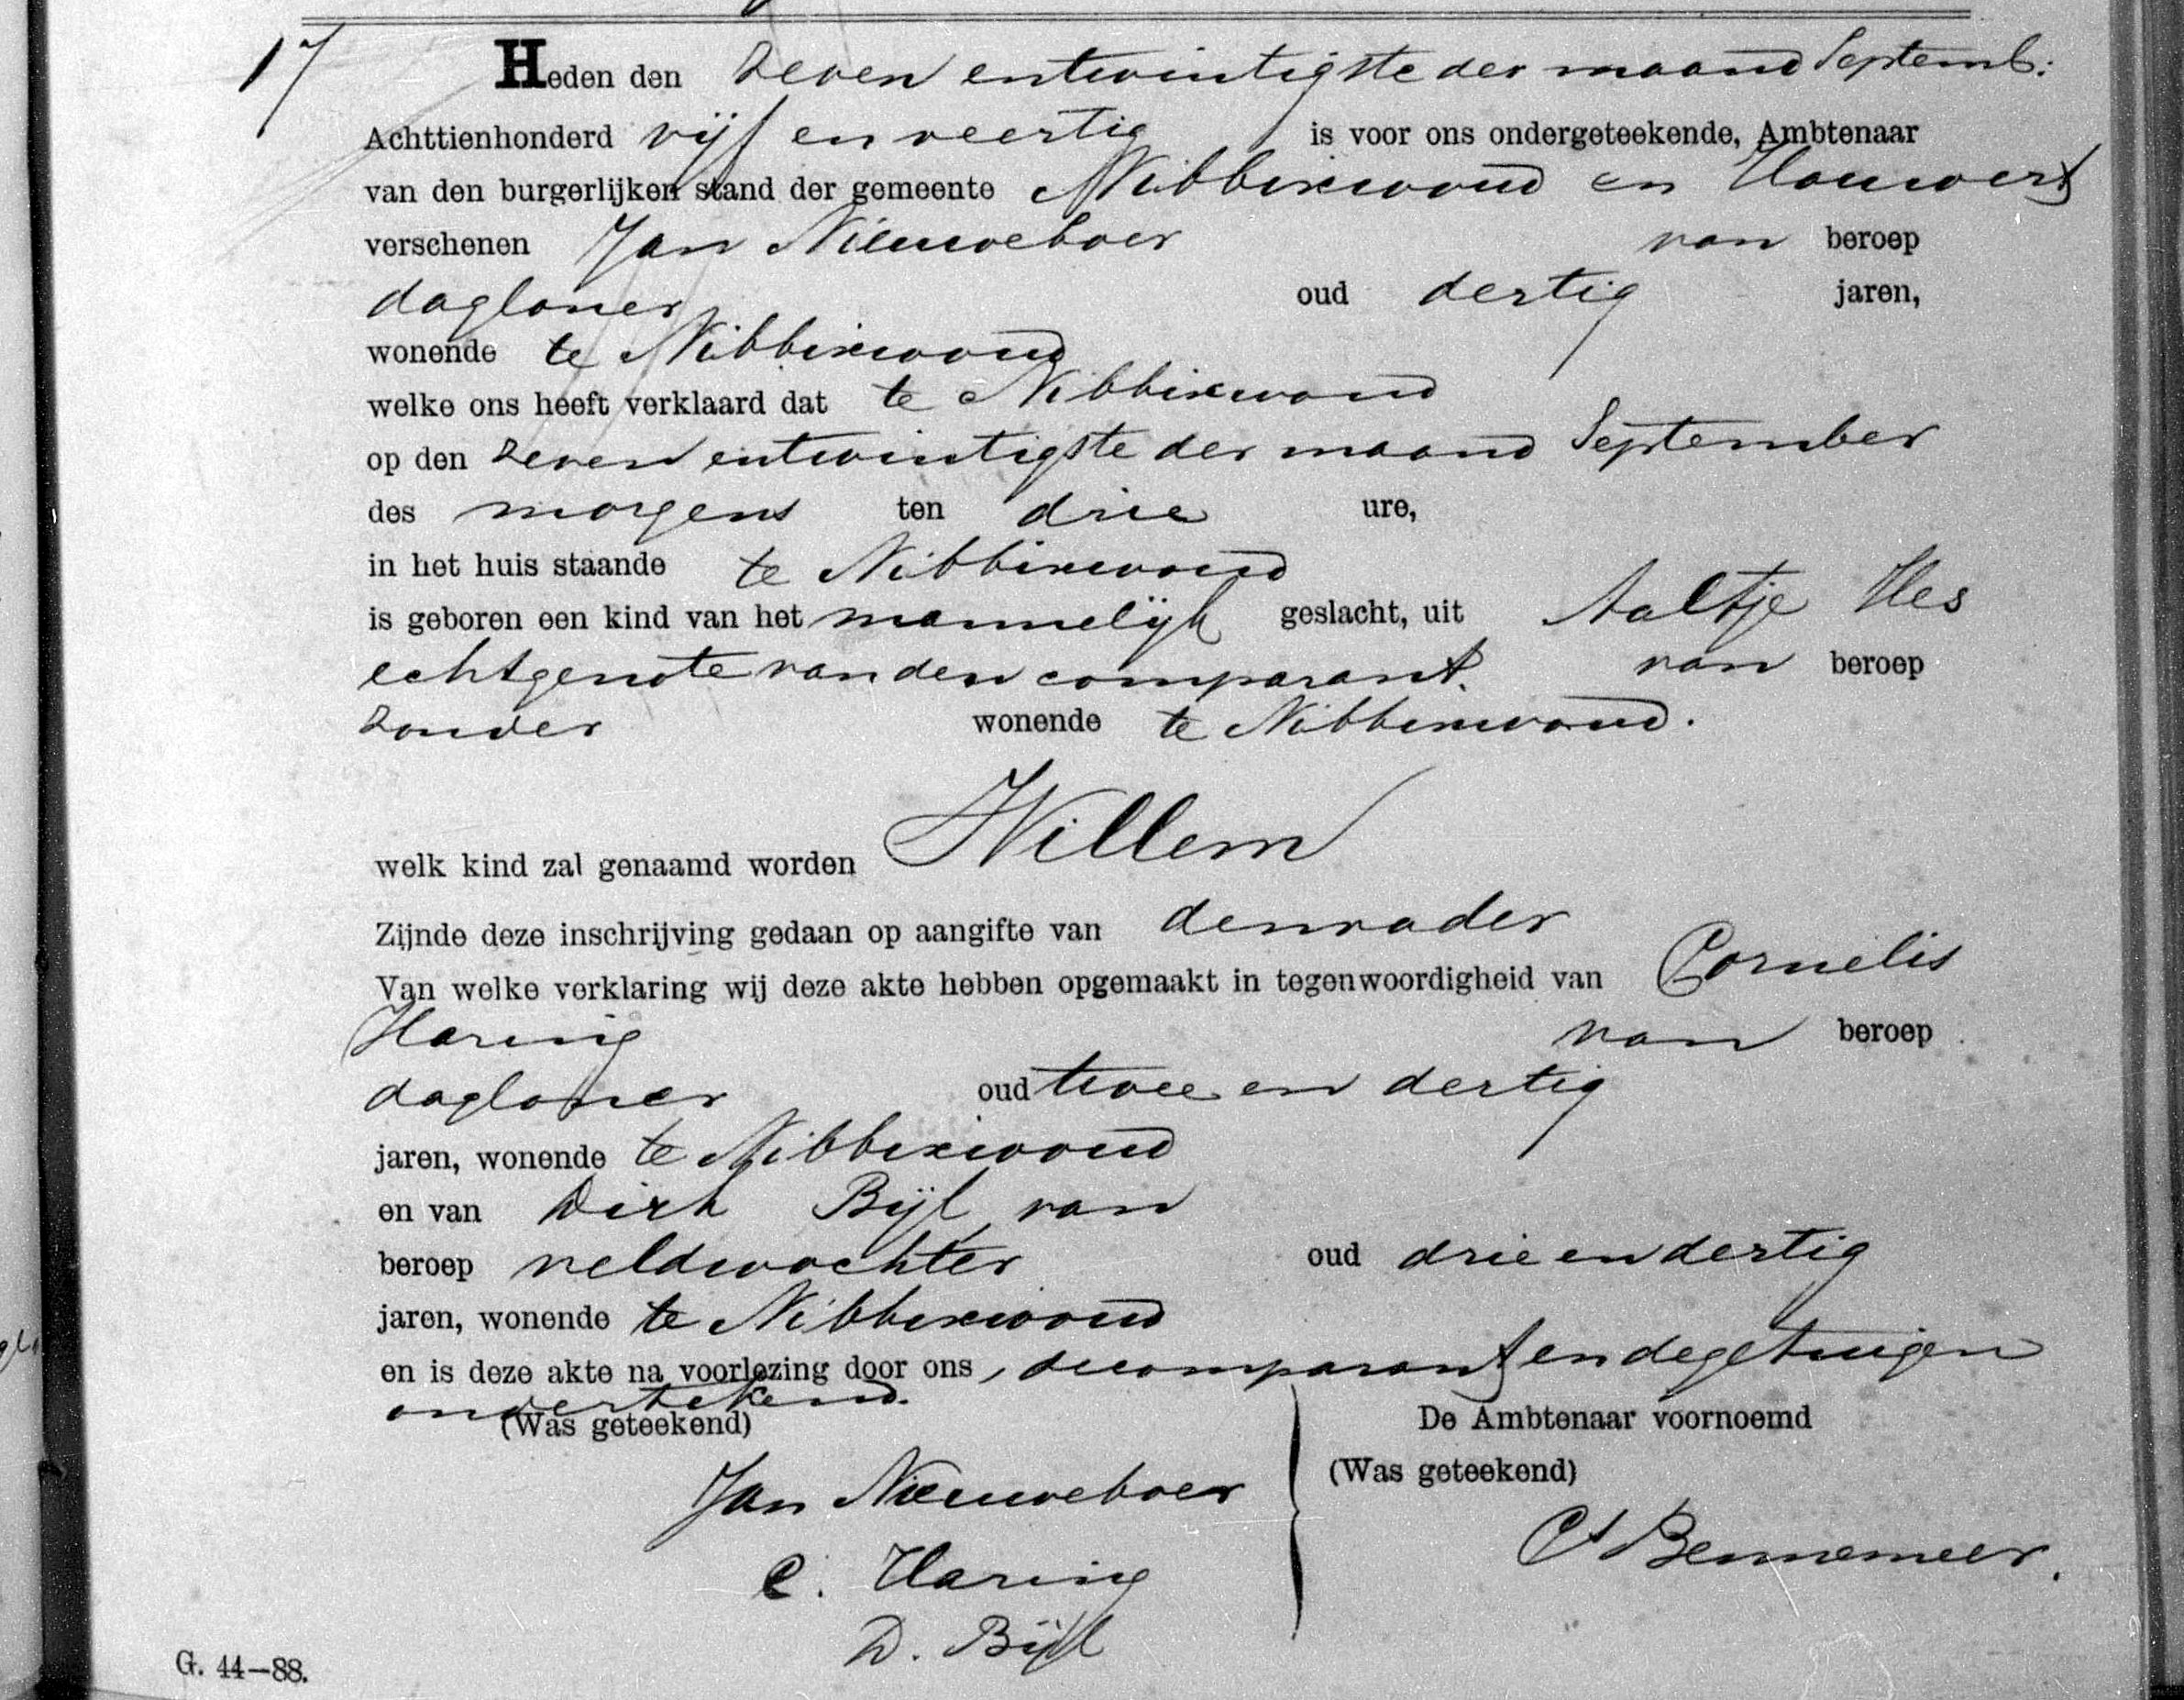 17
Heden den zeven entwintigste der maand Septemb:
Achttienhonderd vijf en veertig is voor ons ondergeteekende, Ambtenaar
van den burgerlijken stand der gemeente Nibbixwoud en Hauwert
verschenen Jan Nieuweboer van beroep
dagloner oud dertig jaren,
wonende te Nibbixwoud
welke ons heeft verklaard dat te Nibbixwoud
op den zeven entwintigste der maand September
des morgens ten drie ure,
in het huis staande te Nibbixwoud
is geboren een kind van het mannelijk geslacht, uit Aaltje Hes
echtgenote van den comparant. van beroep
zonder wonende te Nibbixwoud.
welk kind zal genaamd worden Willem
Zijnde deze inschrijving gedaan op aangifte van den vader
Van welke verklaring wij deze akte hebben opgemaakt in tegenwoordigheid van Cornelis
Haring van beroep
dagloner oud twee en dertig
jaren, wonende te Nibbixwoud
en van Dirk Bijl van
beroep veldwachter oud drie en dertig
jaren, wonende te Nibbixwoud
en is deze akte na voorlezing door ons, de comparant en de getuigen
ondertekend.
(Was geteekend) De Ambtenaar voornoemd
(Was geteekend)
Jan Nieuweboer
Bennemeer.
C. Haring
D. Bijl
G. 44-88.